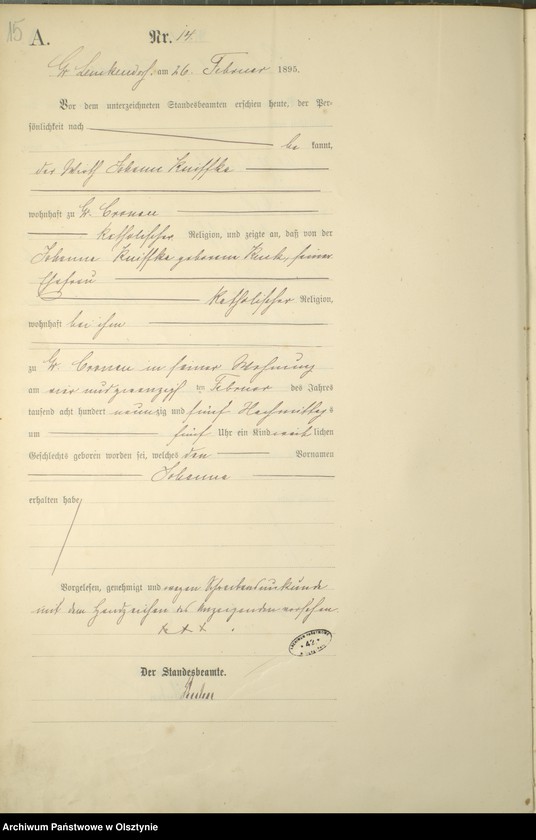 15
A. Nr. 14
Gr. Lemkendorf am 26 Februar 1895.
Vor dem unterzeichneten Standesbeamten erschien heute, der Per-
sönlichkeit nach
be kannt,
der Wirth Johann Kniffka
wohnhaft zu Gr. Cronau
katholischer Religion, und zeigte an, daß von der
Johanna Kniffka geborenen seiner
Ehefrau
katholischer Religion,
wohnhaft bei ihm
zu Gr. Cronau in seiner Wohnung
am vier und zwanzigsten Februar des Jahres
tausend acht hundert neunzig und fünf Nachmittags
um fünf Uhr ein Kind weiblichen
Geschlechts geboren worden sei, welches den Vornamen
Johanna
erhalten habe
Vorgelesen, genehmigt und wegen Schreibensunkunde
mit dem Handzeichen des Anzeigenden versehen.
+ + +
Der Standesbeamte.
Archiwum Państwowe w Olsztynie